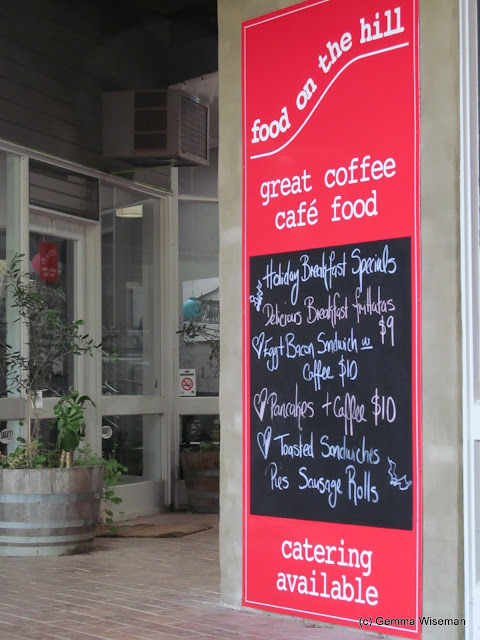 food on the hill
great coffee
café food
Holiday Breakfast Specials
Delicious Breakfast frittatas
$9
Egg + Bacon Sandwich w
Coffee $10
Pancakes + Coffee $10
Toasted Sandwiches
Pies Sausage Rolls
catering
available
(c) Gemma Wiseman